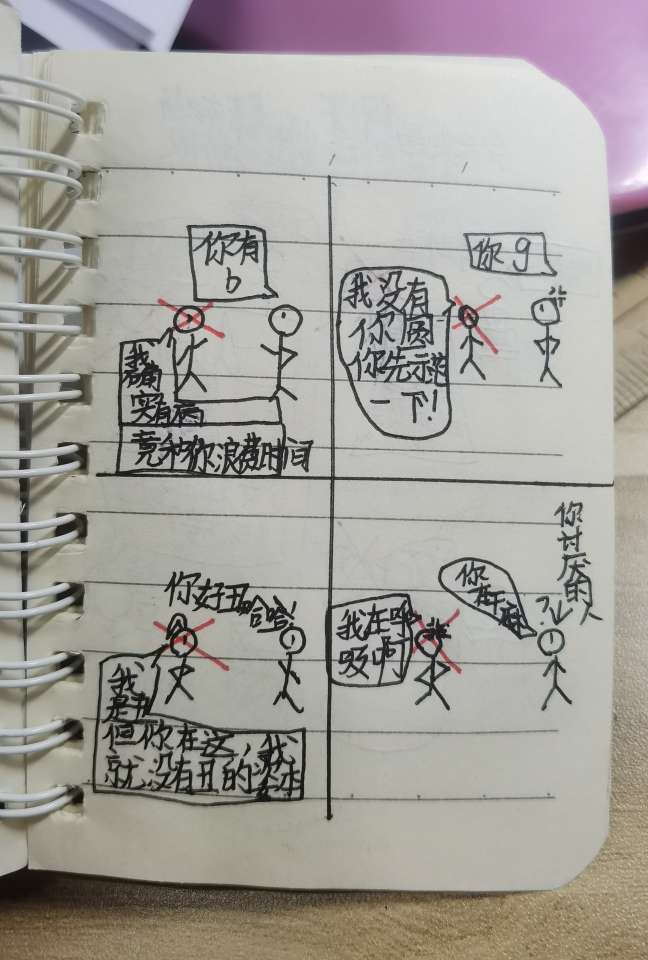 你有
b
我
确
实有病
竟和你浪费时间
你g
我没有
你圆
你先示范
一下!
你好丑
哈哈!
我
是丑
但你在这,我
就没有丑的资本
你讨厌的人
你在干嘛
?
我在呼
吸啊